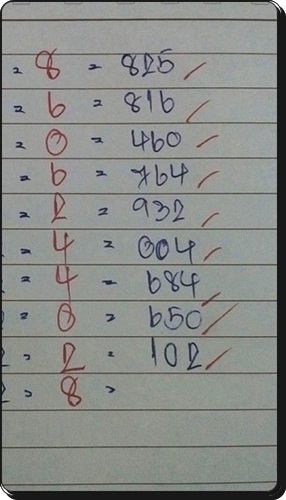 = 8 = 825 /
= 6 = 816 /
= 0 = 460 /
= 6 = 764 /
= 2 = 932 /
= 4 = 004 /
= 4 = 684 /
= 0 = 650 /
= 2 = 102 /
= 8 =